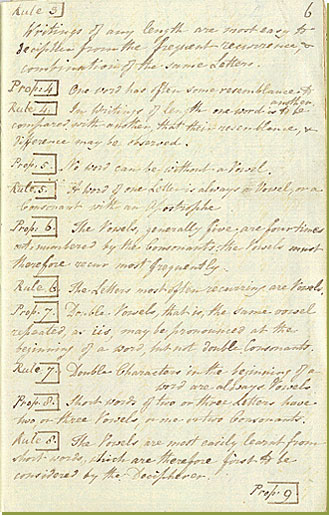 6
Rule 3
Writings of any length are most easy to
decipher from the frequent recurrence, &
combination of the same Letters.
Prop: 4 One word has often some resemblance to
another
Rule 4. In Writings of length one word is to be
compared with another, that their resemblance, &
difference may be observed.
Prop. 5. No word can be without a Vowel.
Rule 5. A word of one Letter is always a Vowel, or a
Consonant with an Apostrophe
Prop: 6. The Vowels, generally five, are four times
outnumbered by the Consonants; the Vowels must
therefore recur most frequently.
Rule 6. The Letters most often recurring are Vowels.
Prop. 7. Double Vowels, that is, the same vowel
repeated, as ii, may be pronounced at the
beginning of a word, but not double Consonants.
Rule 7. Double Characters in the beginning of a
word are always Vowels
Prop. 8. Short words of two or three Letters have
two or three Vowels, one or two Consonants.
Rule 8. The Vowels are most easily learnt from
short words, which are therefore first to be
considered by the Decipherer.
Prop: 9